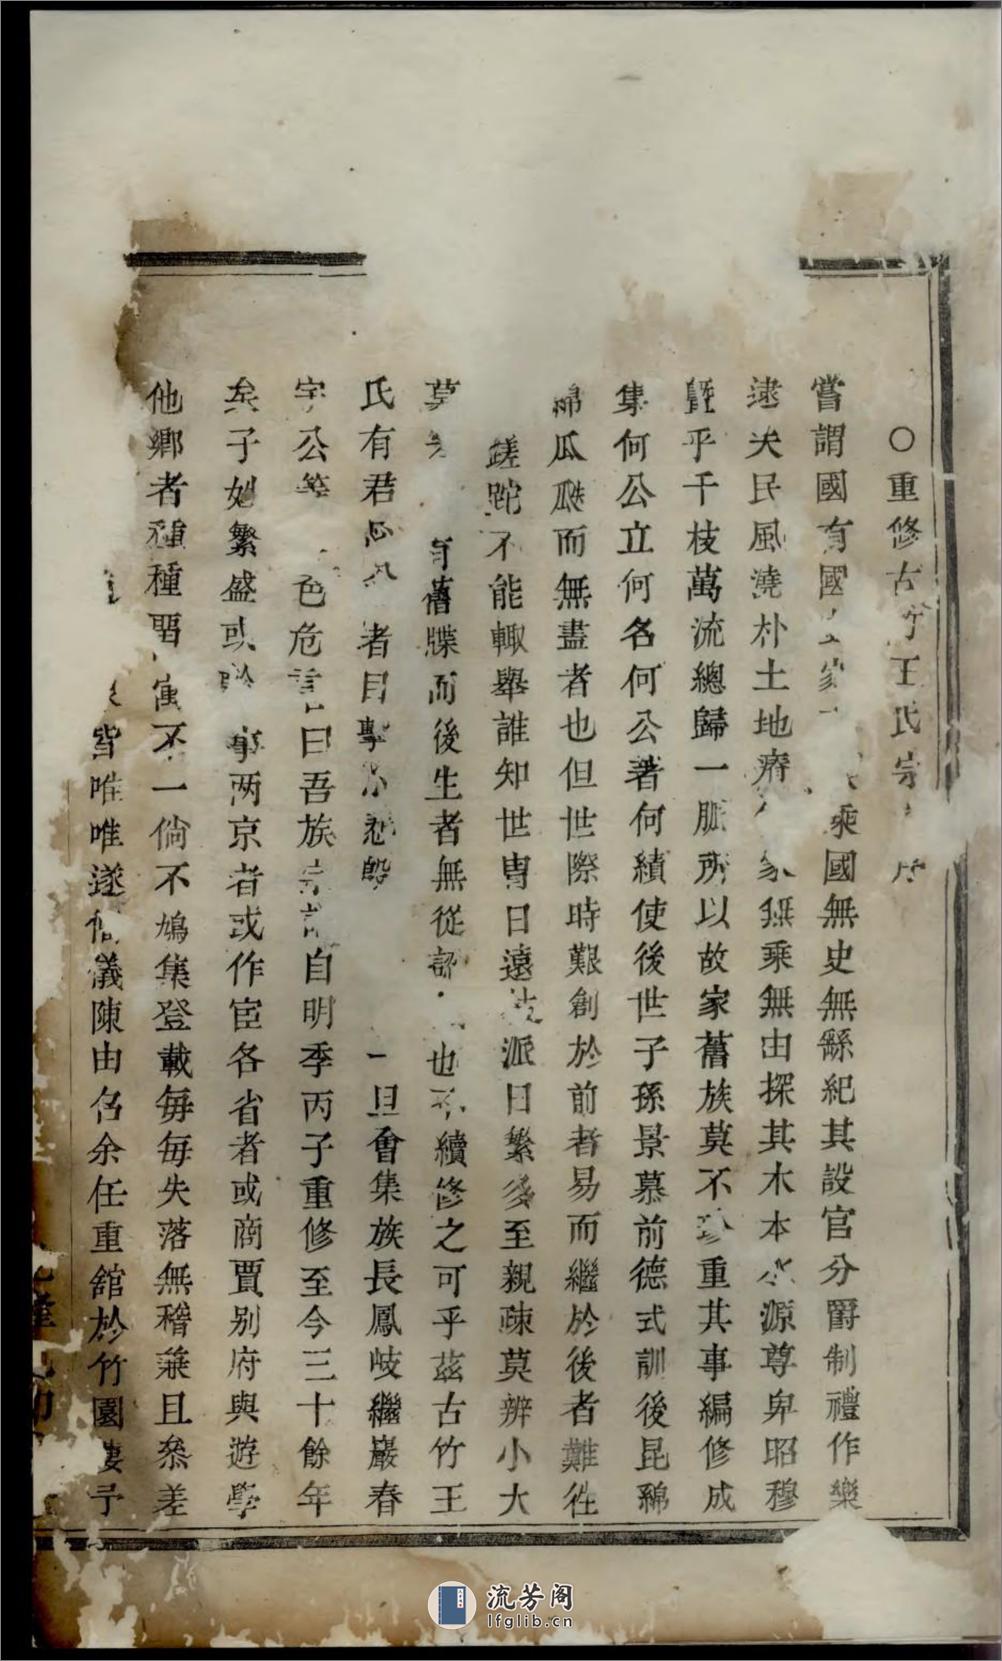 ○重修古竹王氏宗 序
嘗謂國有國史家 乘國無史無繇紀其設官分爵制禮作樂
逮夫民風澆朴土地瘠 家無乘無由探其木本水源尊卑昭穆
暨乎千枝萬流總歸一脈所以故家舊族莫不珍重其事編修成
集何公立何名何公著何績使後世子孫景慕前德式訓後昆綿
綿瓜瓞而無盡者也但世際時艱創於前者易而繼於後者難徃
蹉跎不能輙舉誰知世專日遠 派日繁 至親疎莫辨小大
莫 有舊牒而後生者無從 也不續修之可乎茲古竹王
氏有君 者目擊 一旦會集族長鳳岐繼巖春
宇公等 色危言曰吾族宗譜自明季丙子重修至今三十餘年
矣子姓繁盛或 两京者或作宦各省者或商賈别府與遊學
他鄉者種種 寓不一倘不鳩集登載毎毎失落無稽兼且叅差
皆唯唯遂 儀陳由召余任重舘於竹園 予
流芳阁
lfglib.cn